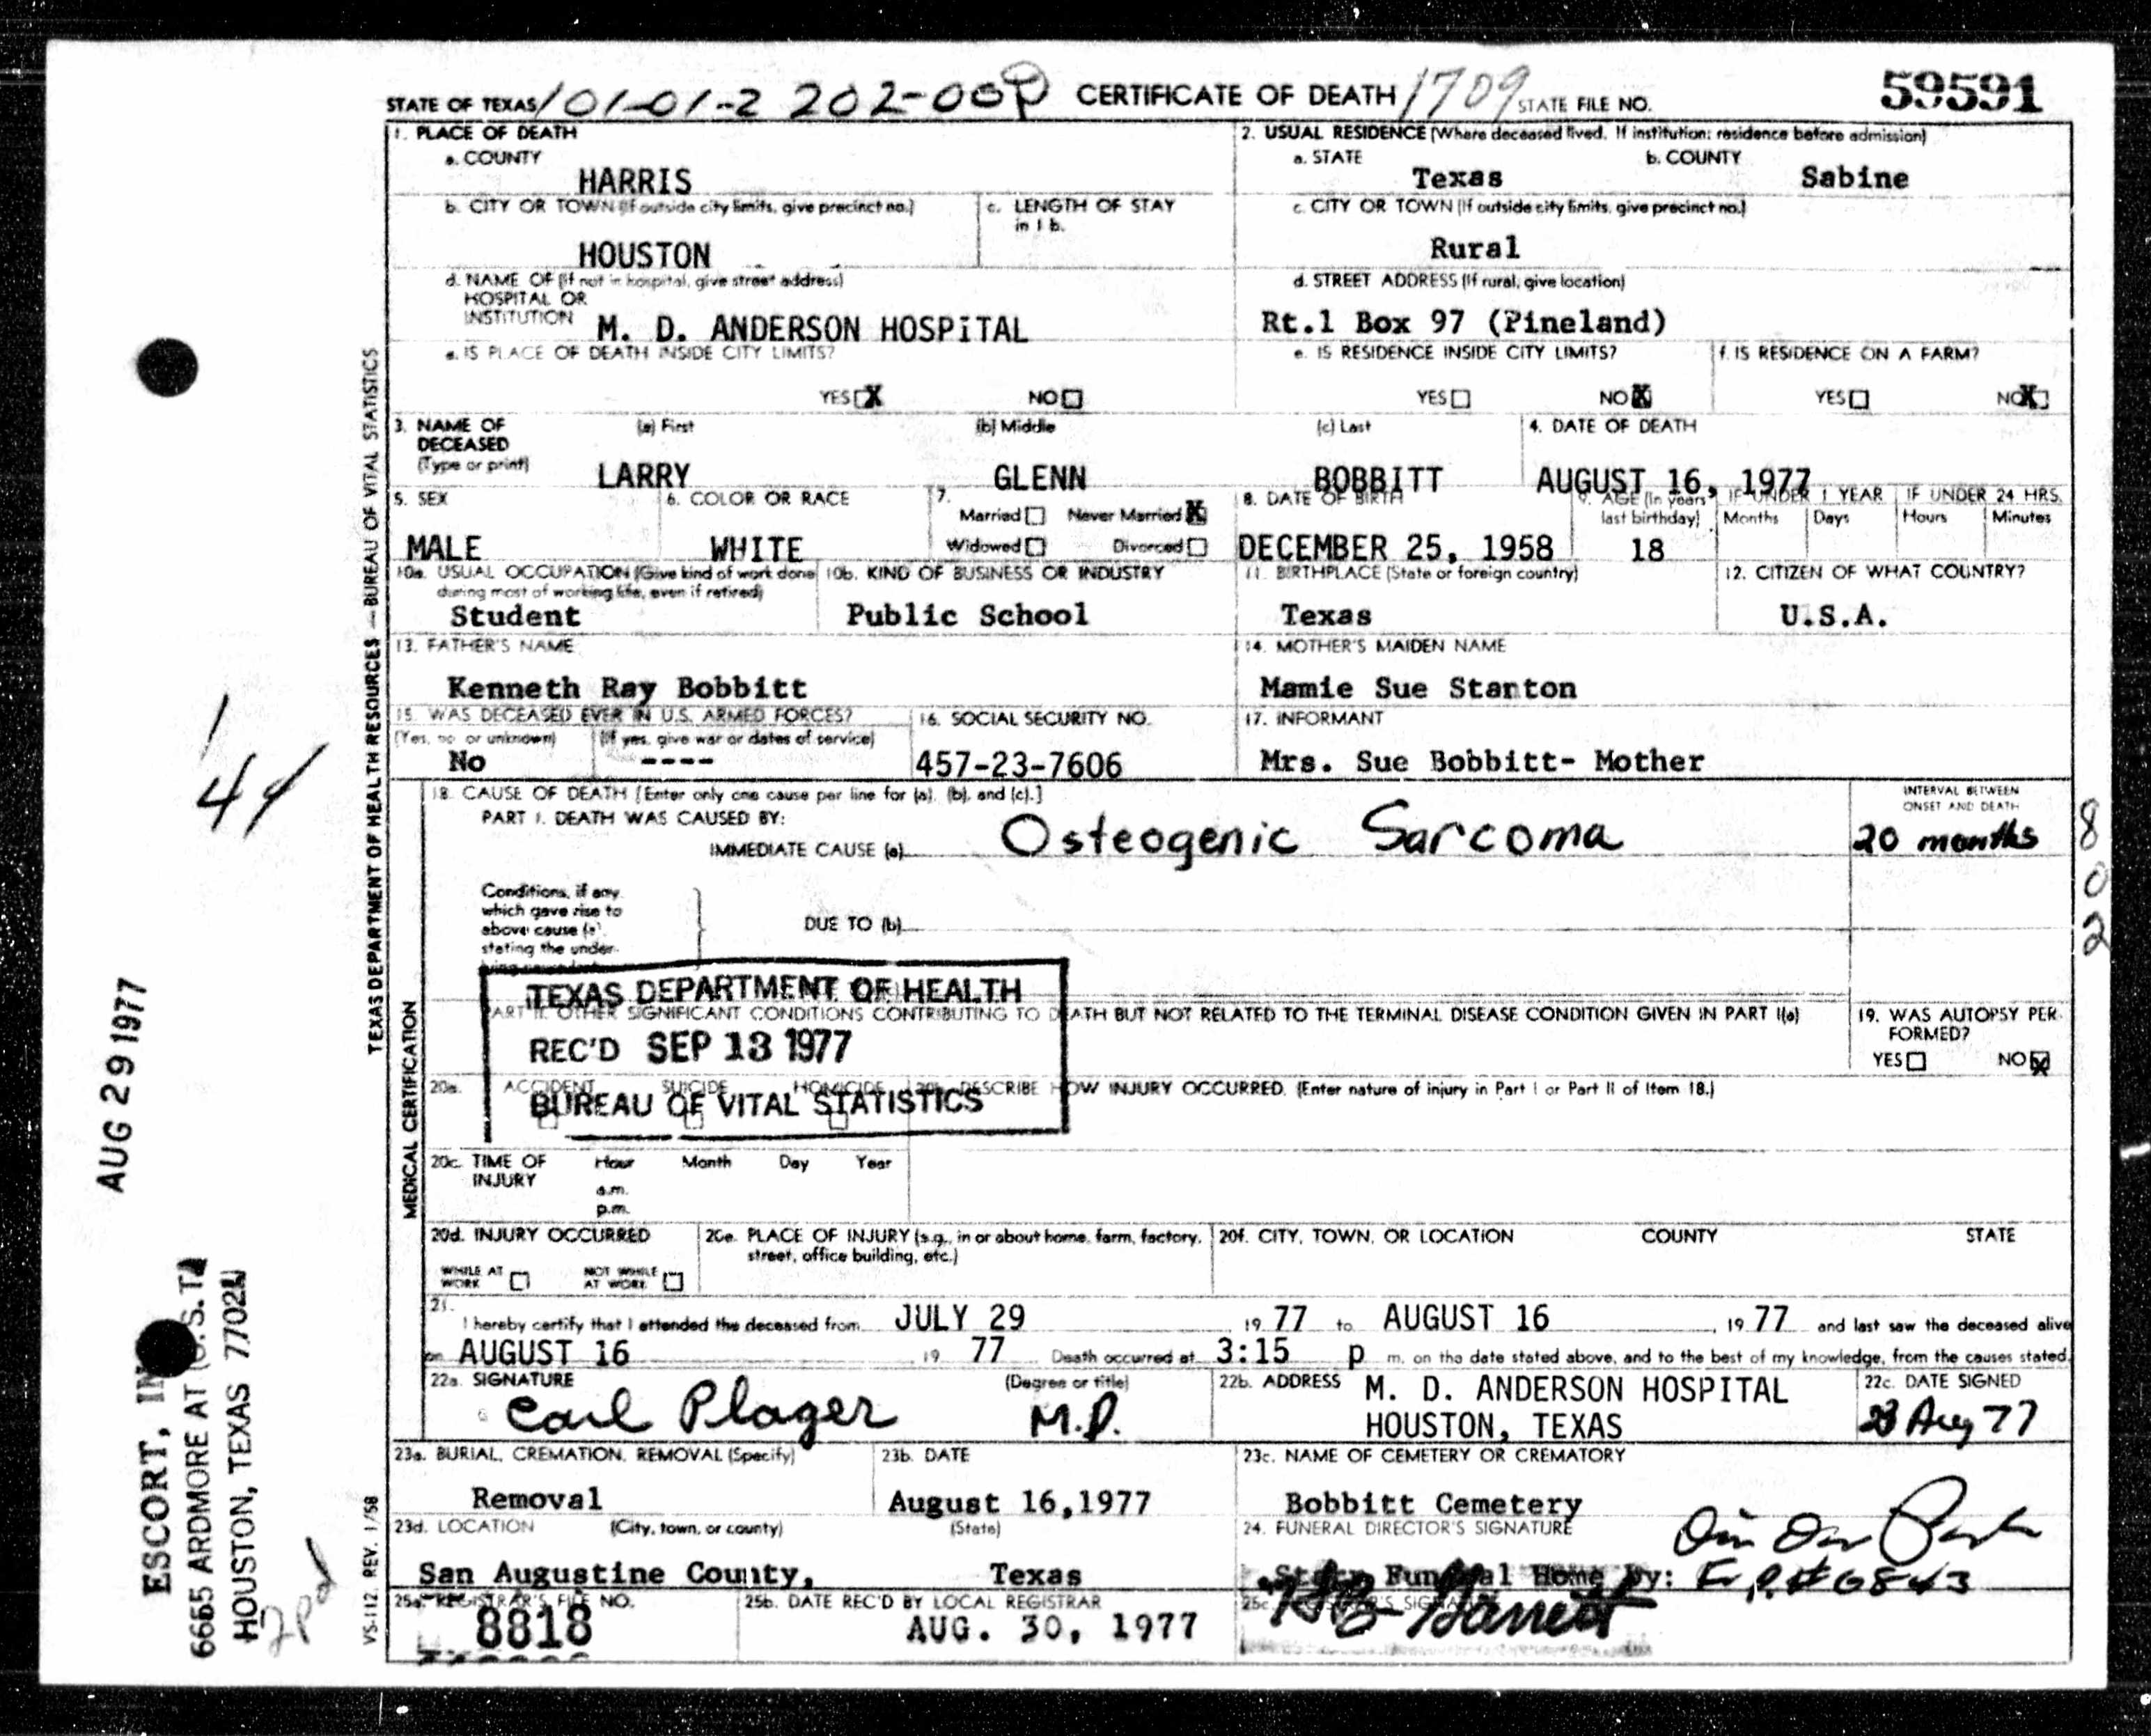 STATE OF TEXAS 101-01-2 202-00 CERTIFICATE OF DEATH 1709 STATE FILE NO. 59591
1. PLACE OF DEATH
a. COUNTY
HARRIS
2. USUAL RESIDENCE (Where deceased lived. If institution: residence before admission)
a. STATE b. COUNTY
Texas Sabine
b. CITY OR TOWN (If outside city limits, give precinct no.) c. LENGTH OF STAY in 1 b.
HOUSTON
c. CITY OR TOWN (If outside city limits, give precinct no.)
Rural
d. NAME OF (If not in hospital, give street address)
HOSPITAL OR
INSTITUTION M. D. ANDERSON HOSPITAL
d. STREET ADDRESS (If rural, give location)
Rt.1 Box 97 (Pineland)
e. IS PLACE OF DEATH INSIDE CITY LIMITS?
YES X NO
e. IS RESIDENCE INSIDE CITY LIMITS? f. IS RESIDENCE ON A FARM?
YES NO X YES NO X
3. NAME OF DECEASED (Type or print) (a) First (b) Middle (c) Last 4. DATE OF DEATH
LARRY GLENN BOBBITT AUGUST 16, 1977
5. SEX 6. COLOR OR RACE 7. Married Never Married X Widowed Divorced
MALE WHITE
8. DATE OF BIRTH 9. AGE (In years last birthday) IF UNDER 1 YEAR IF UNDER 24 HRS.
Months Days Hours Minutes
DECEMBER 25, 1958 18
10a. USUAL OCCUPATION (Give kind of work done during most of working life, even if retired) 10b. KIND OF BUSINESS OR INDUSTRY 11. BIRTHPLACE (State or foreign country) 12. CITIZEN OF WHAT COUNTRY?
Student Public School Texas U.S.A.
13. FATHER'S NAME 14. MOTHER'S MAIDEN NAME
Kenneth Ray Bobbitt Mamie Sue Stanton
15. WAS DECEASED EVER IN U.S. ARMED FORCES? 16. SOCIAL SECURITY NO. 17. INFORMANT
(Yes, no or unknown) (If yes, give war or dates of service)
No ---- 457-23-7606 Mrs. Sue Bobbitt- Mother
18. CAUSE OF DEATH [Enter only one cause per line for (a), (b), and (c).]
INTERVAL BETWEEN ONSET AND DEATH
PART I. DEATH WAS CAUSED BY:
IMMEDIATE CAUSE (a) Osteogenic Sarcoma 20 months
Conditions, if any
which gave rise to
above cause (a)
stating the under-
DUE TO (b)
TEXAS DEPARTMENT OF HEALTH
REC'D SEP 13 1977
BUREAU OF VITAL STATISTICS
PART II. OTHER SIGNIFICANT CONDITIONS CONTRIBUTING TO DEATH BUT NOT RELATED TO THE TERMINAL DISEASE CONDITION GIVEN IN PART I(a)
19. WAS AUTOPSY PERFORMED?
YES NO X
20a. ACCIDENT SUICIDE HOMICIDE 20b. DESCRIBE HOW INJURY OCCURRED. (Enter nature of injury in Part I or Part II of Item 18.)
20c. TIME OF INJURY Hour Month Day Year
a.m.
p.m.
20d. INJURY OCCURRED
WHILE AT WORK NOT WHILE AT WORK
20e. PLACE OF INJURY (e.g., in or about home, farm, factory, street, office building, etc.)
20f. CITY, TOWN, OR LOCATION COUNTY STATE
21. I hereby certify that I attended the deceased from JULY 29 19 77 to AUGUST 16, 19 77 and last saw the deceased alive
on AUGUST 16 19 77 Death occurred at 3:15 p m. on the date stated above, and to the best of my knowledge, from the causes stated.
22a. SIGNATURE (Degree or title)
Carl Plager M.D.
22b. ADDRESS M. D. ANDERSON HOSPITAL
HOUSTON, TEXAS
22c. DATE SIGNED
23 Aug 77
23a. BURIAL, CREMATION, REMOVAL (Specify) 23b. DATE 23c. NAME OF CEMETERY OR CREMATORY
Removal August 16,1977 Bobbitt Cemetery
23d. LOCATION (City, town, or county) (State)
San Augustine County, Texas
24. FUNERAL DIRECTOR'S SIGNATURE
Funeral Home By: F.D.# 6843
25a. REGISTRAR'S FILE NO. 25b. DATE REC'D BY LOCAL REGISTRAR 25c. REGISTRAR'S SIGNATURE
8818 AUG. 30, 1977
TEXAS DEPARTMENT OF HEALTH RESOURCES — BUREAU OF VITAL STATISTICS
MEDICAL CERTIFICATION
VS-112 REV. 1/58
AUG 29 1977
ESCORT, IN
6665 ARDMORE AT
HOUSTON, TEXAS
8
0
2